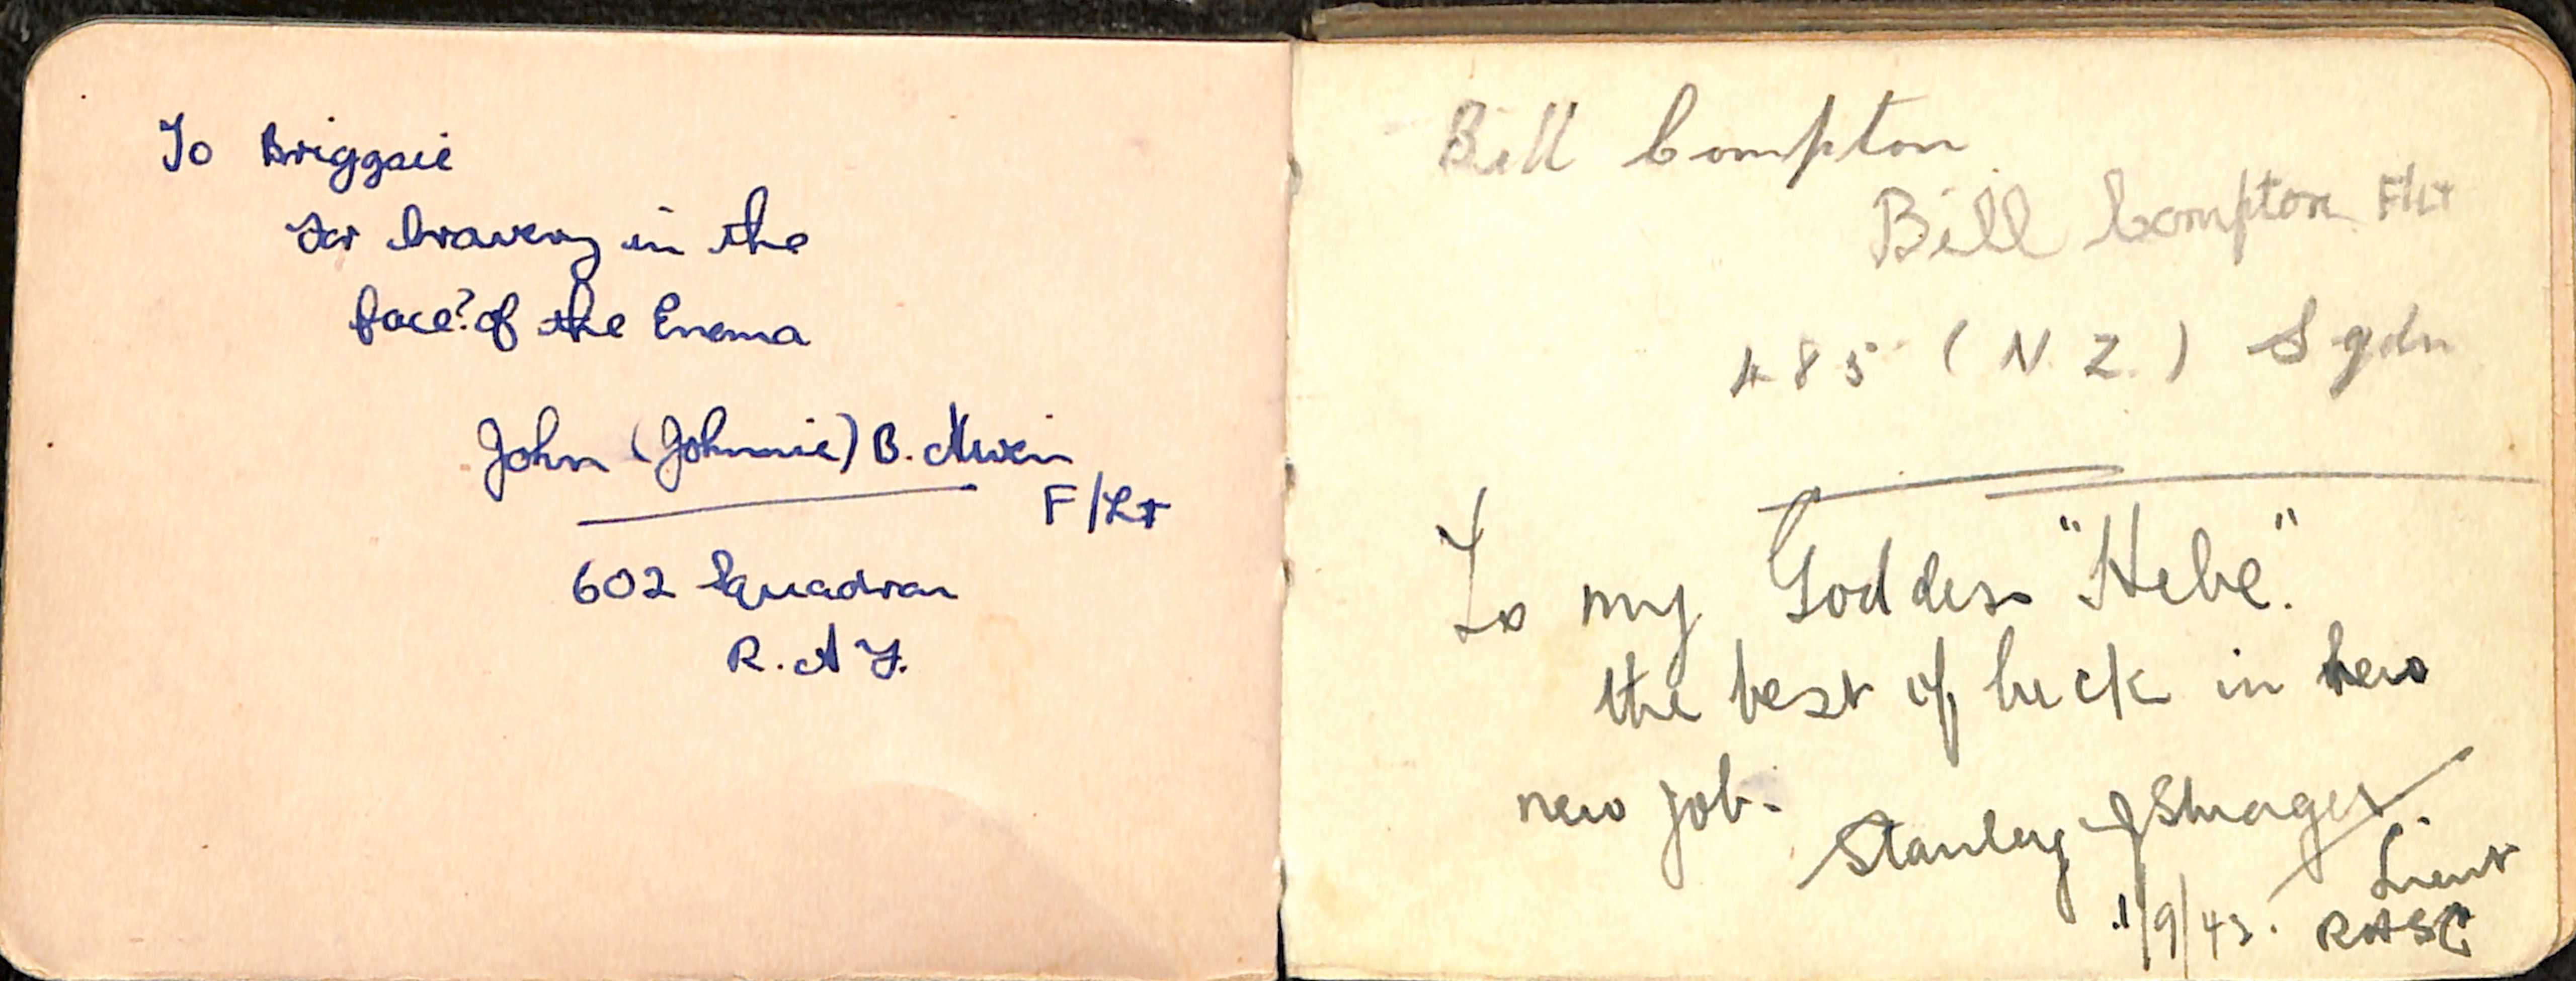 To Briggsie
for bravery in the
face? of the Enema
John (Johnnie) B.
F/Lt
602 Squadron
R.A.F.
Bill Compton
Bill Compton F/Lt
485 (N.Z.) Sqdn
To my Goddess "Hebe".
the best of luck in her
new job.
Stanley J
Lieut
1/9/43. RASC